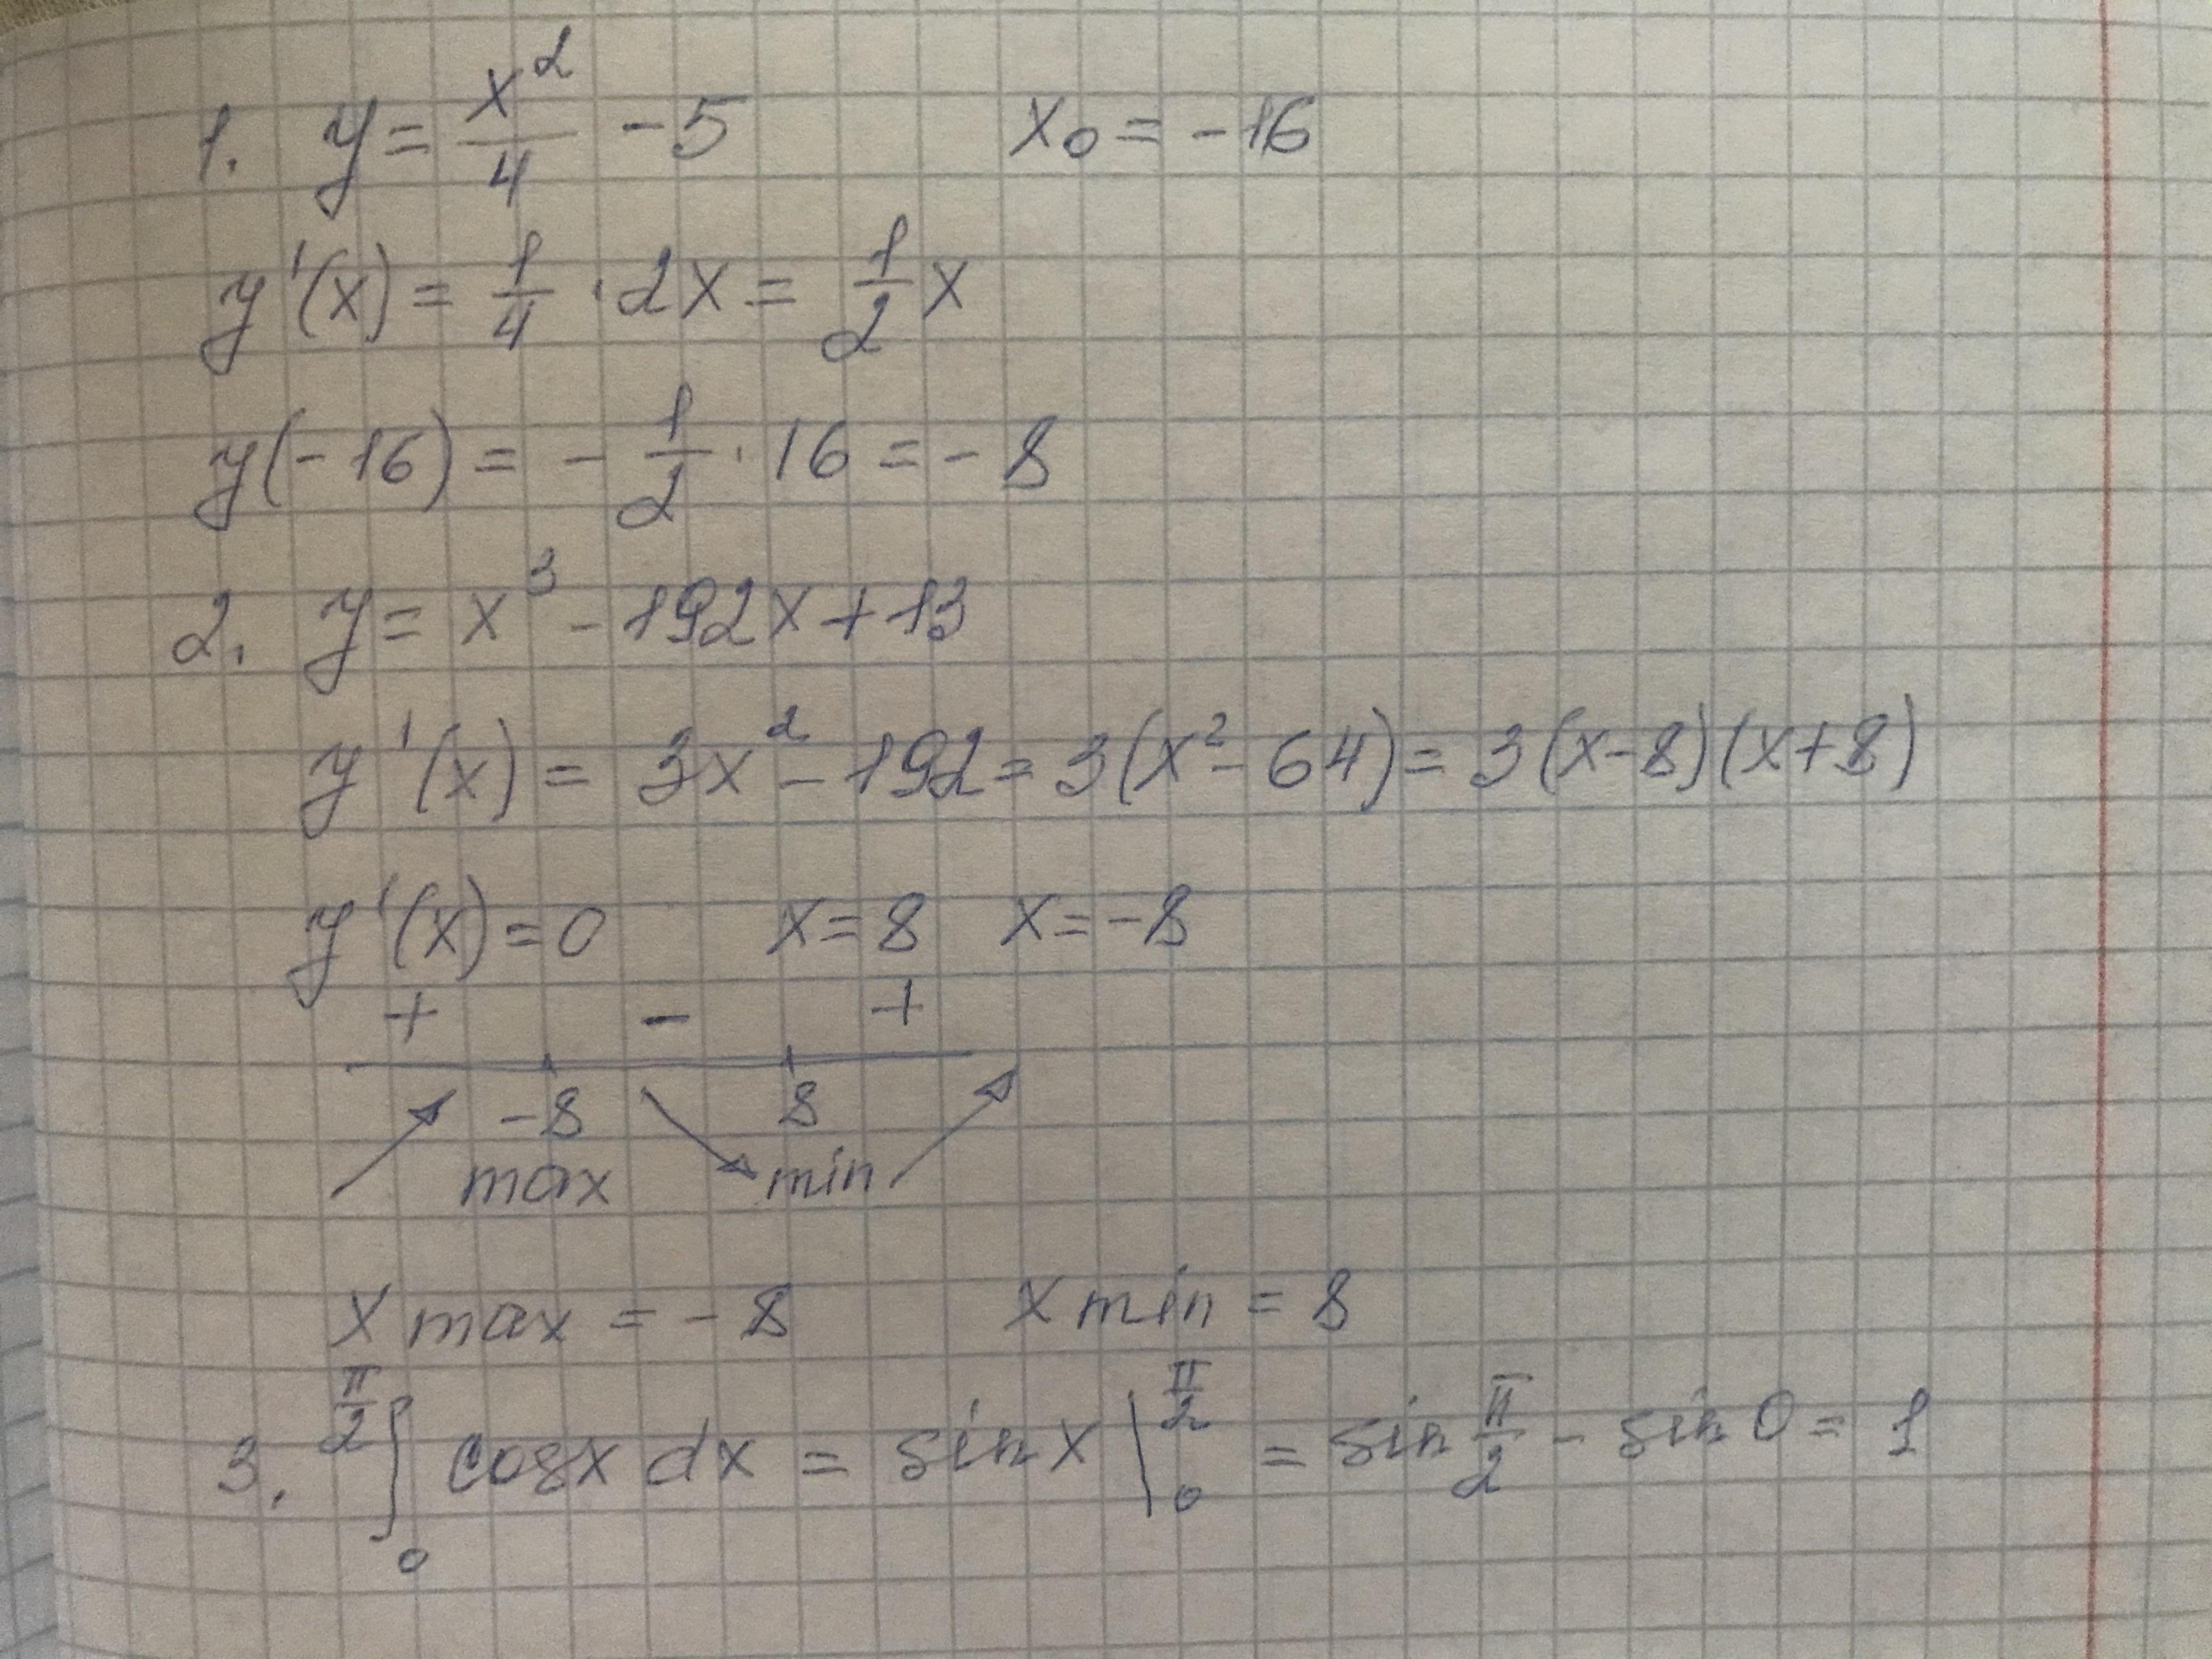 1. y = x²/4 - 5 x₀ = -16
y'(x) = 1/4 · 2x = 1/2 x
y(-16) = - 1/2 · 16 = - 8
2. y = x³ - 192x + 13
y'(x) = 3x² - 192 = 3(x² - 64) = 3(x-8)(x+8)
y'(x) = 0 x = 8 x = -8
+ - +
-8 8
max min
x max = - 8 x min = 8
3. ∫₀^(π/2) cosx dx = sin x |₀^(π/2) = sin π/2 - sin 0 = 1